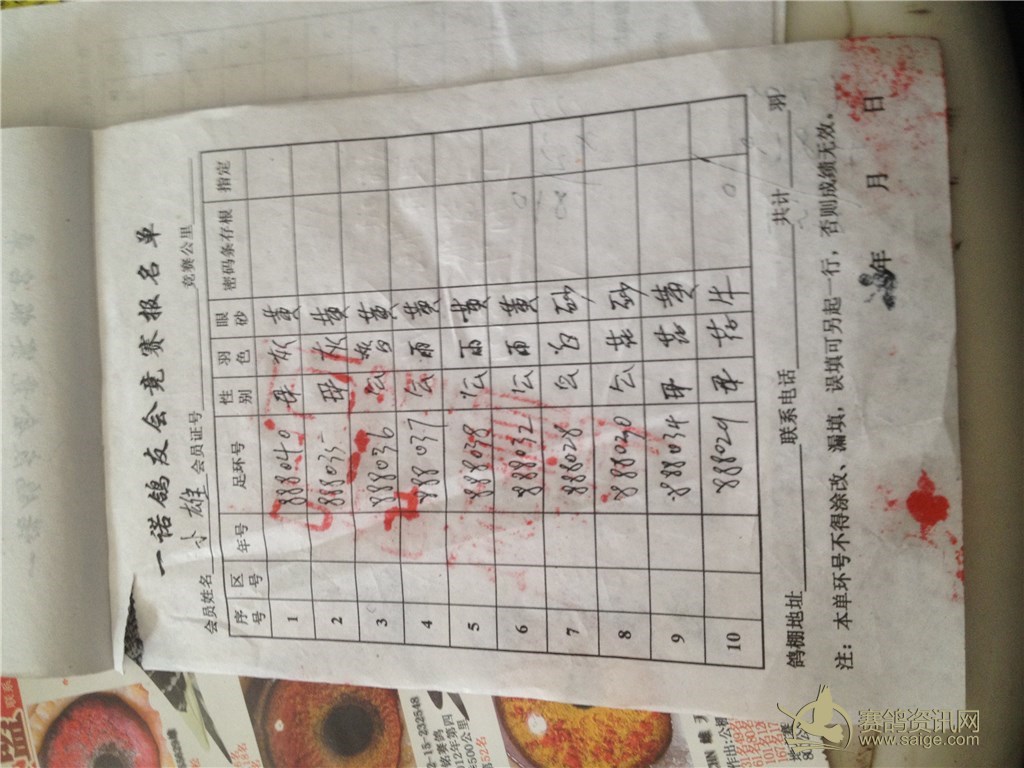 一诺鸽友会竞赛报名单
会员姓名 小雄 会员证号 竞赛公里
序号 区号 年号 足环号 性别 羽色 眼砂 密码条存根 指定
1 888040 母 灰 黄
2 888035 母 灰 黄
3 888036 公 黄
4 888037 公 雨 黄
5 888038 公 雨 黄
6 888032 公 雨 黄
7 888028 公 白 砂
8 888030 公 花 砂
9 888034 母 花 黄
10 888029 母 花 牛
鸽棚地址 联系电话 共计 羽
注：本单环号不得涂改、漏填，误填可另起一行，否则成绩无效。
年 月 日
-15-232548
012年第四
500公里
赛鸽资讯网
www.saige.com